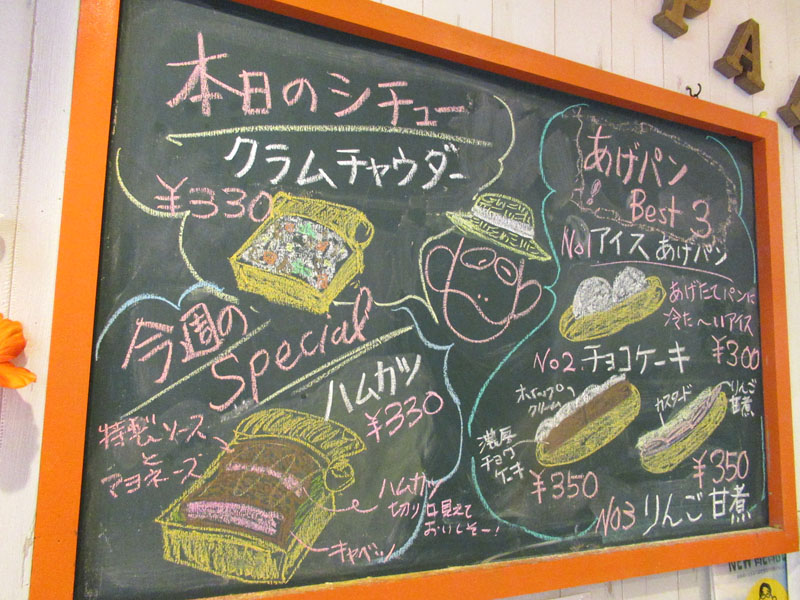 本日のシチュー
クラムチャウダー
¥330
今週の
Special
ハムカツ
¥330
特製ソース
と
マヨネーズ
ハムカツ
切り口見えて
おいしそー!
キャベツ
あげパン
Best 3
No1 アイスあげパン
あげたてパンに
冷た〜いアイス
¥300
No2. チョコケーキ
ホイップ
クリーム
濃厚
チョコ
ケーキ
¥350
カスタード
りんご
甘煮
¥350
No3 りんご甘煮
PA